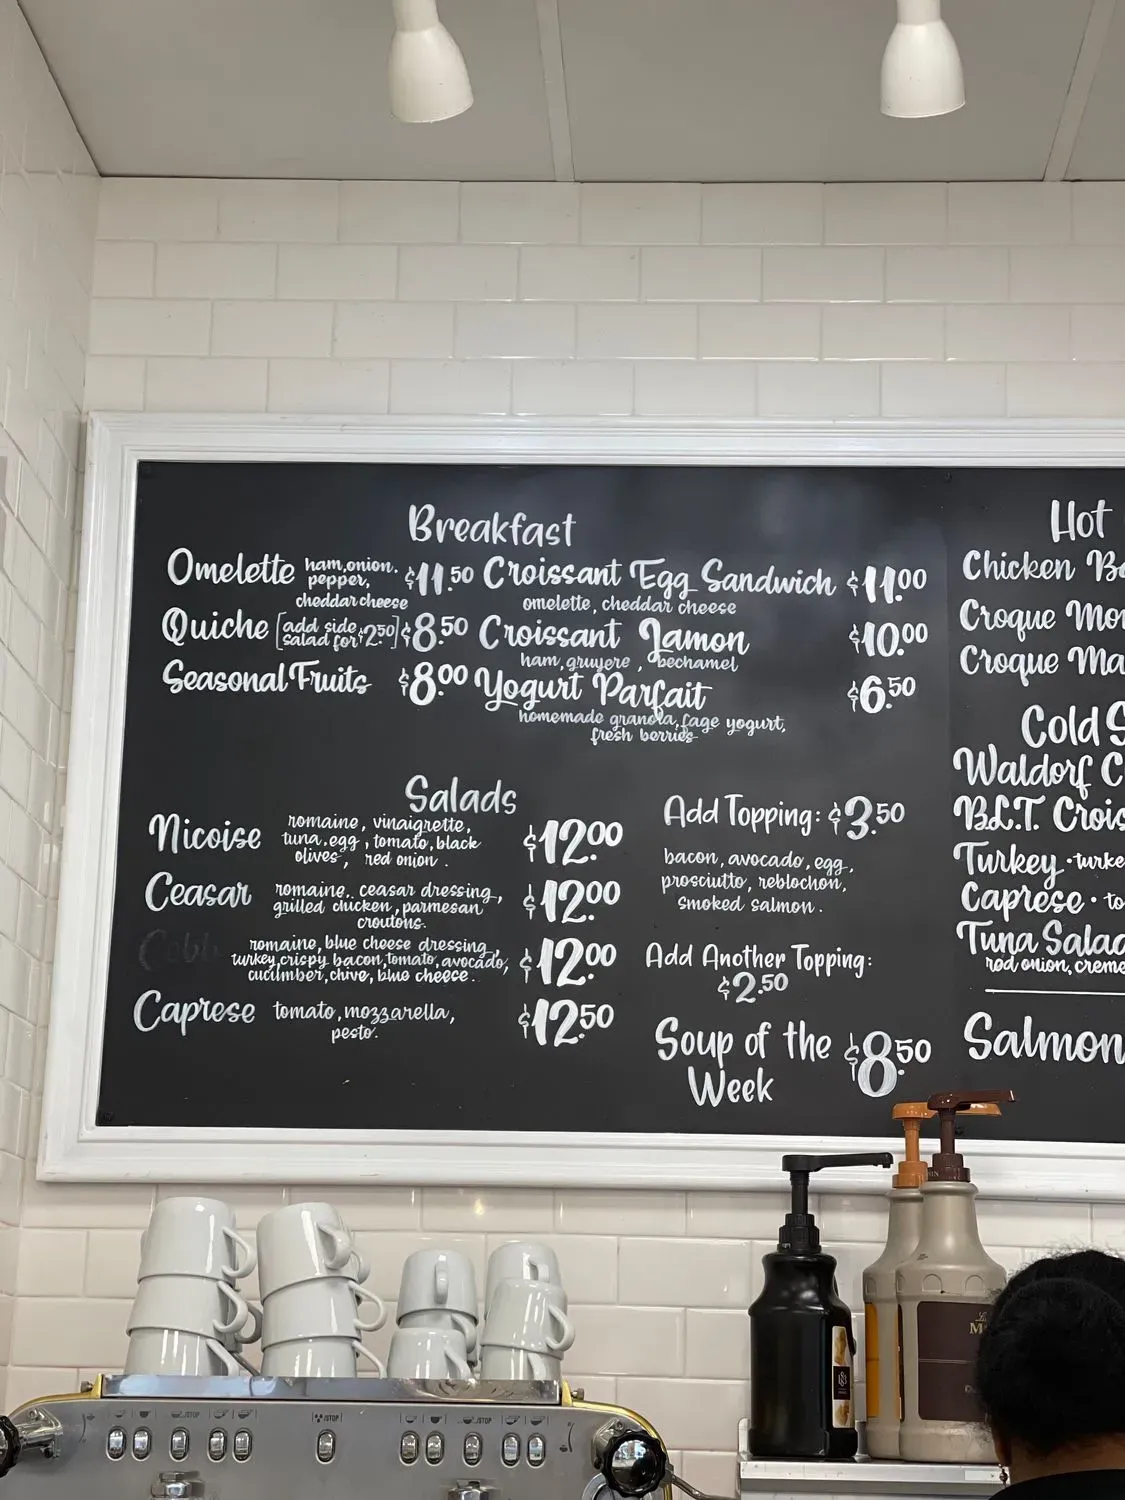 Breakfast
Omelette ham, onion. $11.50
pepper,
cheddar cheese
Quiche [add side salad for $2.50] $8.50
Seasonal Fruits $8.00
Croissant Egg Sandwich $11.00
omelette, cheddar cheese
Croissant Jamon $10.00
ham, gruyere, bechamel
Yogurt Parfait $6.50
homemade granola, fage yogurt,
fresh berries
Salads
Nicoise romaine, vinaigrette, $12.00
tuna, egg, tomato, black
olives, red onion.
Ceasar romaine, ceasar dressing, $12.00
grilled chicken, parmesan
croutons.
Cobb romaine, blue cheese dressing, $12.00
turkey, crispy bacon, tomato, avocado,
cucumber, chive, blue cheese.
Caprese tomato, mozzarella, $12.50
pesto.
Add Topping: $3.50
bacon, avocado, egg,
prosciutto, reblochon,
smoked salmon.
Add Another Topping:
$2.50
Soup of the $8.50
Week
Hot
Chicken
Croque
Croque
Cold
Waldorf
B.L.T.
Turkey ·
Caprese ·
Tuna
red onion,
Salmon